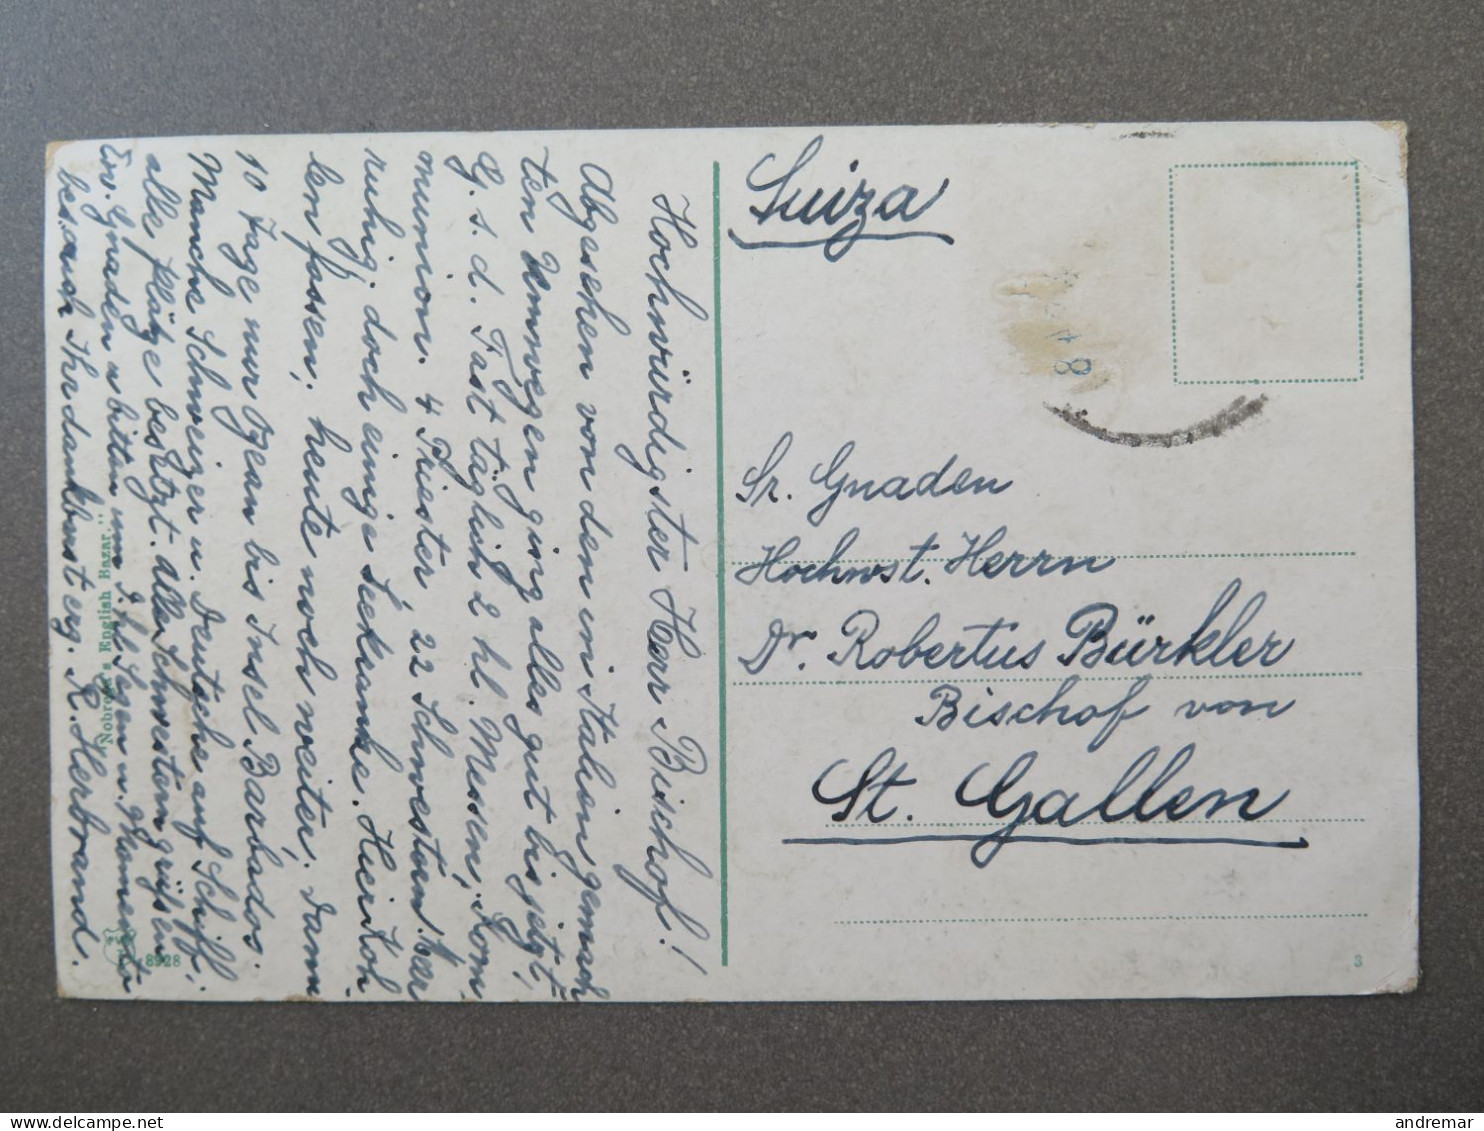 Hochwürdigster Herr Bischof!
Abgesehen von den in Italien gemach
ten Umwegen ging alles gut bis jetzt,
G. s. d. Fast täglich 2 hl. Messen, Kom
munion. 4 Priester, 22 Schwestern. War
ruhig, doch einige Seekranke. Hier Koh
len fassen, heute noch weiter. Dann
10 Tage nur Ozean bis Insel Barbados.
Manche Schweizer u. Deutsche auf Schiff,
alle Plätze besetzt. alle Schwestern grüßen
Ew. Gnaden u bitten um Segen u.
bes. auch Ihr dankbarst erg. R. Herbrand.
"Nobre's English Bazar."
8928
Suiza
8
Sr. Gnaden
Hochwst. Herrn
Dr. Robertus Bürkler
Bischof von
St. Gallen
3
andremar